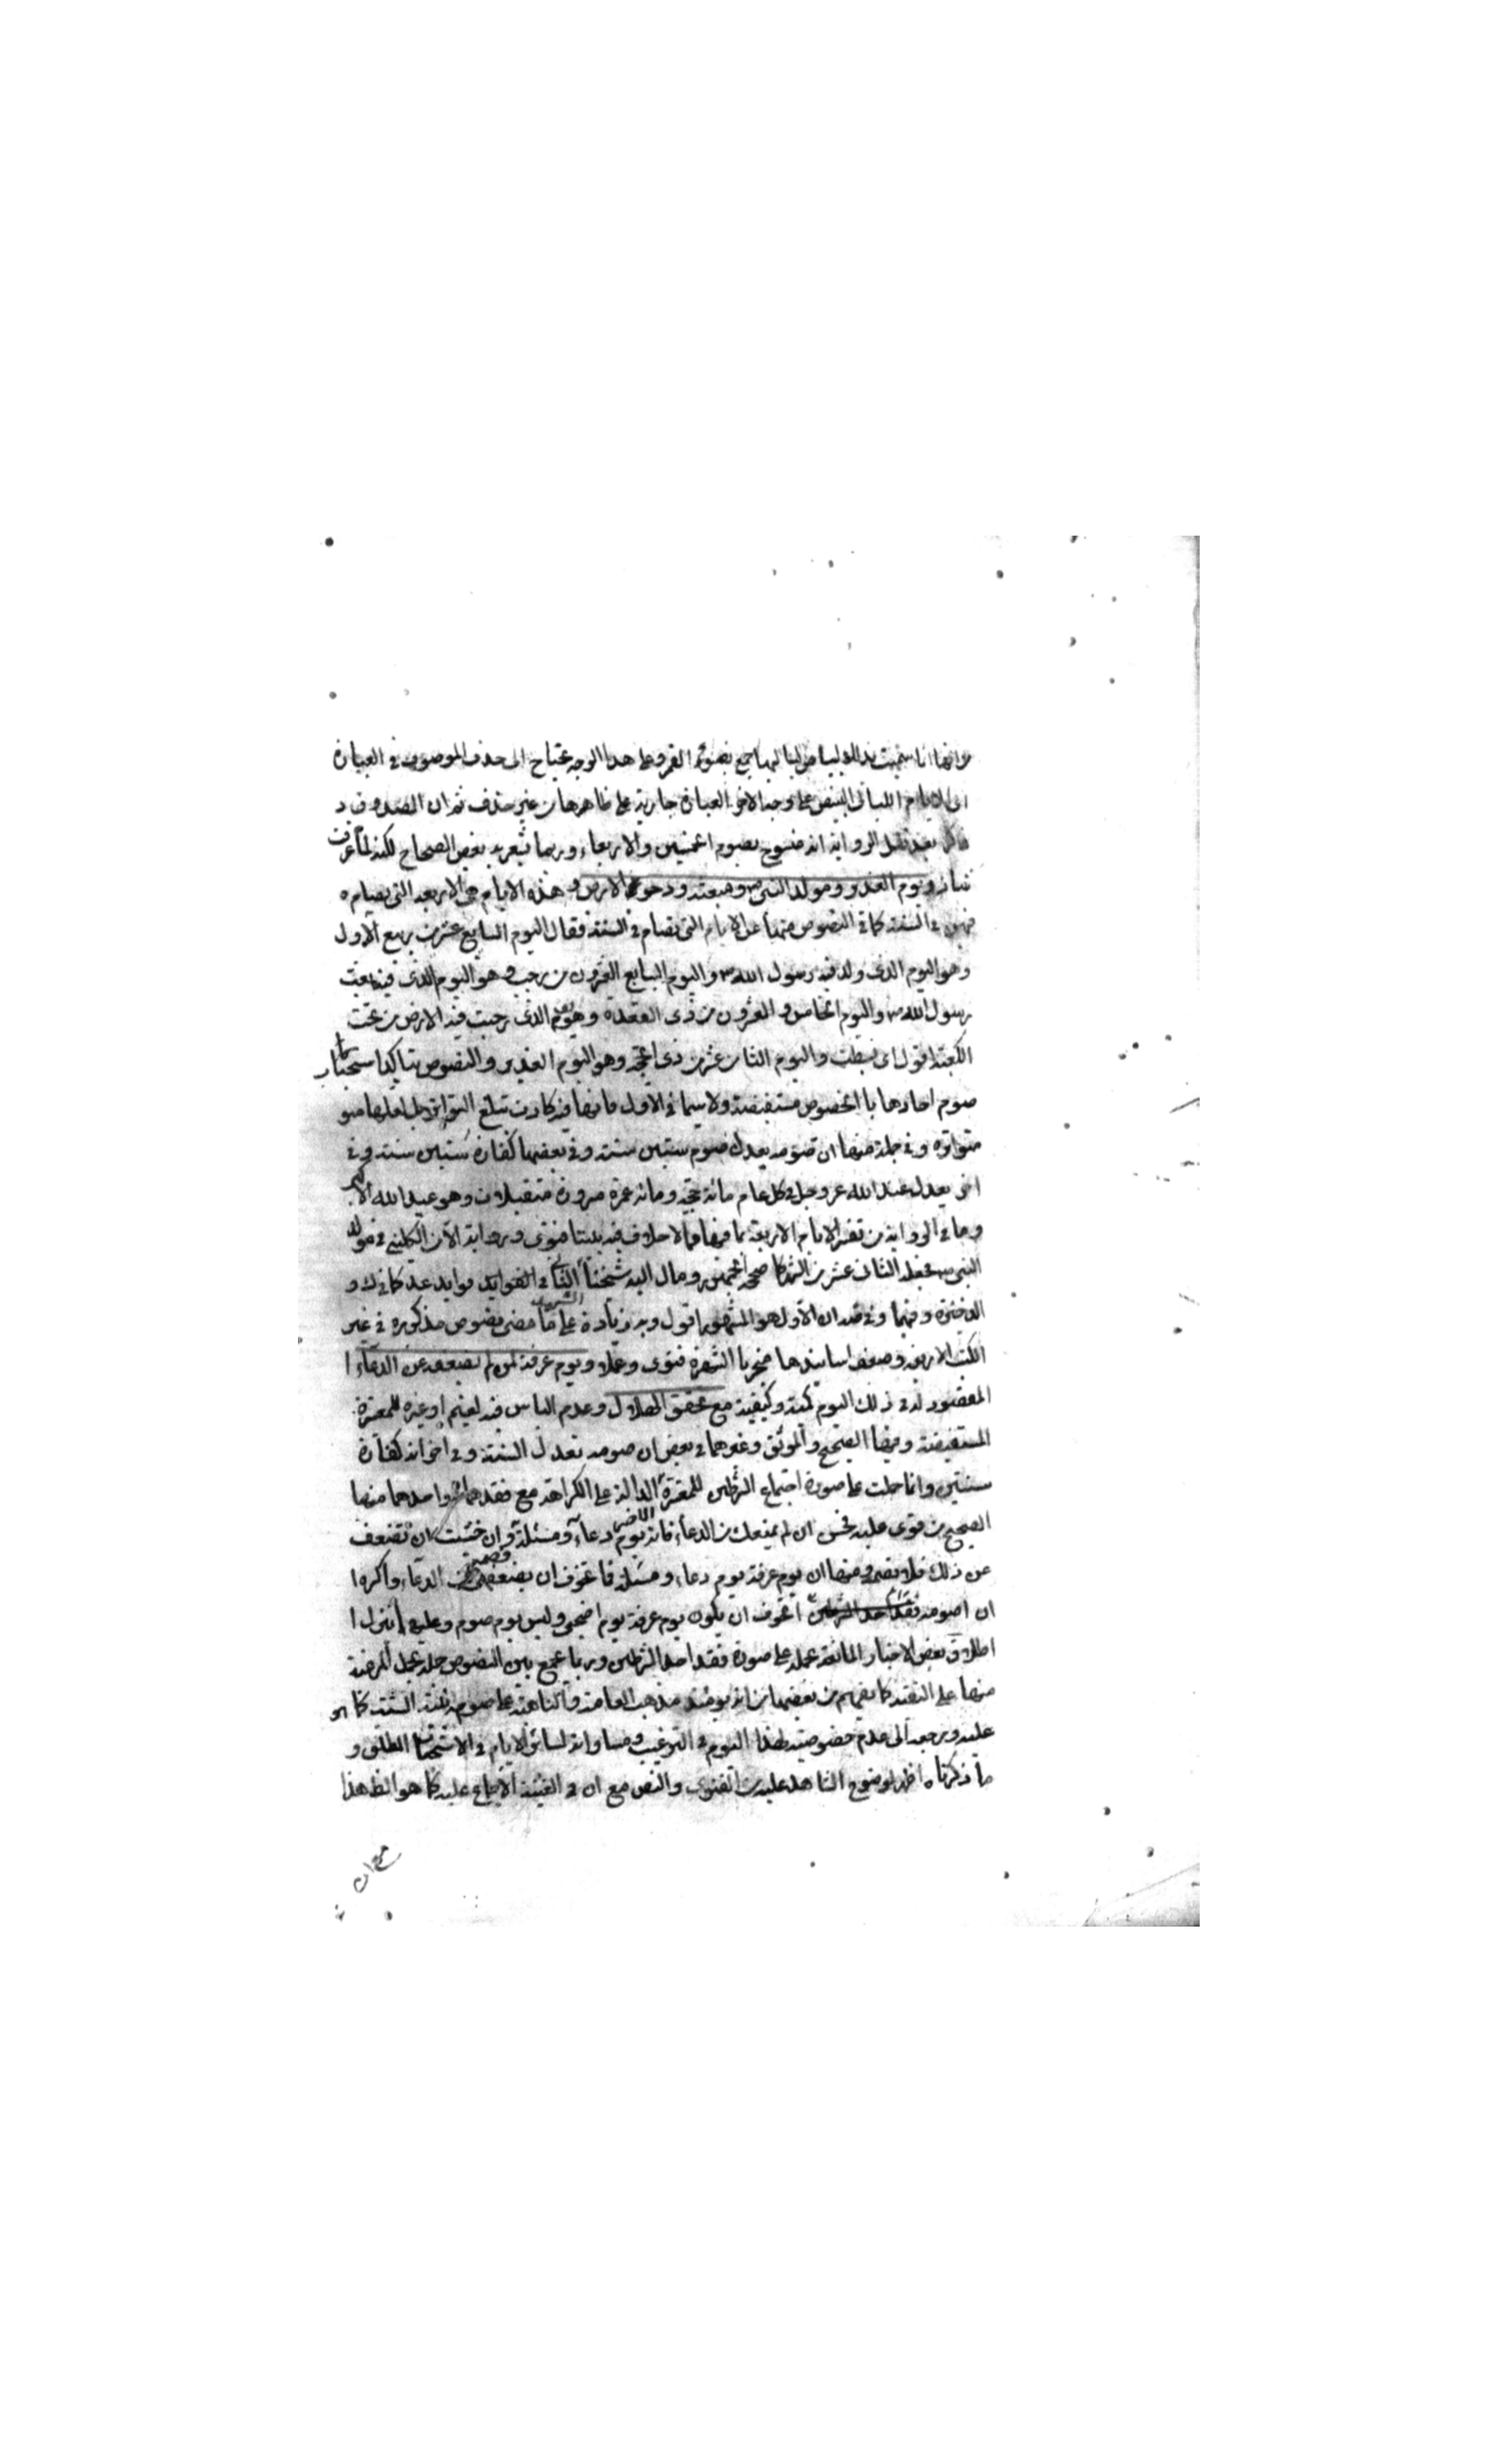 وانها انما سميت بذلك لبياض لياليها اجمع بضوء القمر وعلى هذا الوجه يحتاج الى حذف الموصوف في العبارة
اى الايام الليالي البيض وعلى وجه الاخر العبارة جارية على ظاهرها من غير حذف ثم ان الصدوق ره
ذكر بعد نقل الرواية انه منسوخ بصوم الخميس والاربعاء وربما يشعر به بعض الصحاح لكنه لما عرفت
شاذ ويوم الغدير ومولد النبي ص ومبعثه ودحو الارض وهذه الايام هي الاربعة التي يصام
فيهن في السنة كما في النصوص منها عن الايام التي تصام في السنة فقال اليوم السابع عشر من ربيع الاول
وهو اليوم الذى ولد فيه رسول الله ص واليوم السابع العشرون من رجب وهو اليوم الذى فيه بعث
رسول الله ص واليوم الخامس والعشرون من ذى القعدة وهو يوم الذى دحيت فيه الارض من تحت
الكعبة اقول اى بسطت واليوم الثامن عشر من ذى الحجة وهو اليوم الغدير والنصوص بتاكد استحباب
صوم احادها بالخصوص مستفيضة ولا سيما في الاول فانها قد كادت تبلغ التواتر بل لعلها
متواترة وفي جملة منها ان صومه يعدل صوم ستين سنة وفي بعضها كفارة ستين سنة وفي
اخر يعدل عند الله عز وجل في كل عام مائة حجة ومائة عمرة مبرورة متقبلات وهو عيد الله الاكبر
وما في الرواية من تفسير الايام الاربعة بما فيها مما لا خلاف فيه بيننا فتوى ورواية الا من الكليني في مولد
النبي ص فجعله الثاني عشر من الشهر كما صححه الجمهور ومال اليه شيخنا الثاني في الفوايد عليه كما في ك و
الذخيرة وفيها وفي ان الاول هو المشهور اقول وبه زيادة على ما مضى نصوص مذكورة في غير
الكتب الاربعة وضعف اسانيدها منجبر بالشهرة فتوى وعملا ويوم عرفة لمن لم يضعفه عن الدعاء
المقصود له في ذلك اليوم كمية وكيفية مع تحقق الهلال وعدم التباس فيه لغيم او غيره للمعتبرة
المستفيضة وفيها الصحيح والموثق وغيرهما في بعض ان صومه تعدل السنة وفي اخر انه كفارة
سنتين وانما حملت على صورة اجتماع الشرطين للمعتبرة الدالة على الكراهة مع فقدهما او احدهما منها
الصحيح من قوى عليه فحسن ان لم يمنعك من الدعاء فانه يوم دعاء ومسئلة وان خشيت ان تضعف
عن ذلك فلا تصمه ومنها ان يوم عرفة يوم دعاء ومسئلة فاتخوف ان يضعفني عن الدعاء واكره
ان اصومه اتخوف ان يكون يوم عرفة يوم اضحى وليس بيوم صوم وعليها ينزل
اطلاق بعض الاخبار المانعة بحمله على صورة فقد احد الشرطين وربما يجمع بين النصوص جملة بحمل المرغبة
منها على التقية كما يفهم من بعضها من انه يومئذ مذهب العامة والناهية على صومه بنية السنة كما هو
عليه ويرجعه الى عدم خصوصية لهذا اليوم في الترغيب ومساواته لسائر الايام في الاستحباب المطلق و
ما ذكرناه اظهر لوضوح الشاهد عليه من الفتوى والنص مع ان في الغنية الاجماع عليه كما هو الظ هذا